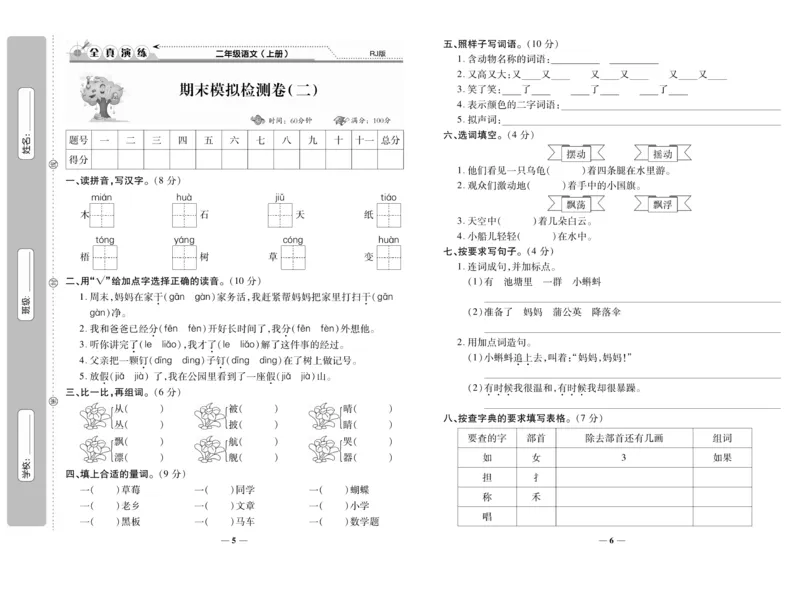 全真演练
二年级语文(上册)
RJ版
期末模拟检测卷(二)
时间:60分钟 满分:100分
题号 一 二 三 四 五 六 七 八 九 十 十一 总分
得分
姓名:
班级:
学校:
一、读拼音,写汉字。(8 分)
mián huà jiū tiáo
木 石 天 纸
tóng yáng cóng huàn
梧 树 草 变
二、用“√”给加点字选择正确的读音。(10 分)
1. 周末,妈妈在家干(gān gàn)家务活,我赶紧帮妈妈把家里打扫干(gān
gàn)净。
2. 我和爸爸已经分(fēn fèn)开好长时间了,我分(fēn fèn)外想他。
3. 听你讲完了(le liǎo),我才了(le liǎo)解了这件事的经过。
4. 父亲把一颗钉(dīng dìng)子钉(dīng dìng)在了树上做记号。
5. 放假(jiǎ jià)了,我在公园里看到了一座假(jiǎ jià)山。
三、比一比,再组词。(6 分)
从( ) 被( ) 晴( )
丛( ) 披( ) 睛( )
飘( ) 航( ) 哭( )
漂( ) 舰( ) 器( )
四、填上合适的量词。(9 分)
一( )草莓 一( )同学 一( )蝴蝶
一( )老乡 一( )文章 一( )小学
一( )黑板 一( )马车 一( )数学题
— 5 —
五、照样子写词语。(10 分)
1. 含动物名称的词语:__________ __________
2. 又高又大:又____又____ 又____又____ 又____又____
3. 笑了笑:____了____ ____了____ ____了____
4. 表示颜色的二字词语:____________________
5. 拟声词:____________________
六、选词填空。(4 分)
摆动 摇动
1. 他们看见一只乌龟( )着四条腿在水里游。
2. 观众们激动地( )着手中的小国旗。
飘荡 飘浮
3. 天空中( )着几朵白云。
4. 小船儿轻轻( )在水中。
七、按要求写句子。(4 分)
1. 连词成句,并加标点。
(1)有 池塘里 一群 小蝌蚪
(2)准备了 妈妈 蒲公英 降落伞
2. 用加点词造句。
(1)小蝌蚪追上去,叫着:“妈妈,妈妈!”
(2)有时候我很温和,有时候我却很暴躁。
八、按查字典的要求填写表格。(7 分)
要查的字 部首 除去部首还有几画 组词
如 女 3 如果
担 扌
称 禾
唱
— 6 —